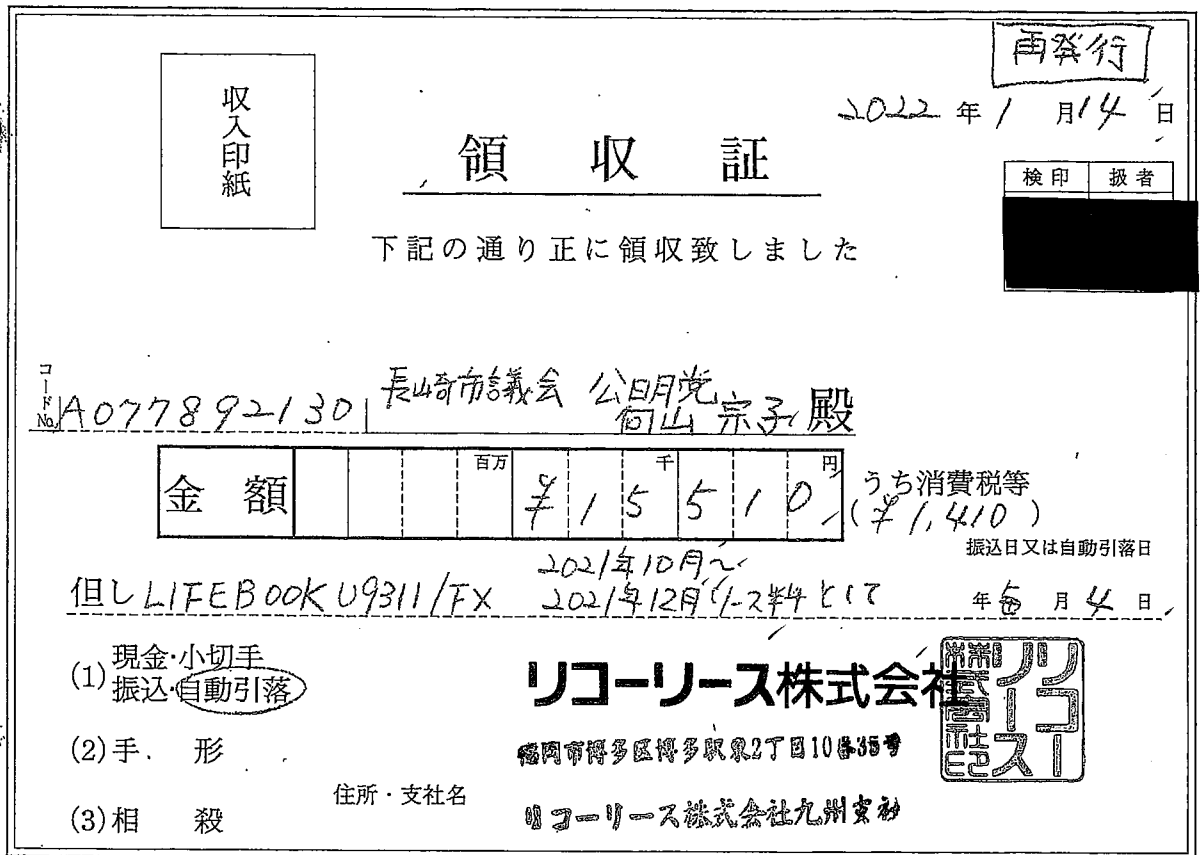 再発行
2022年1月14日
収入印紙
領収証
検印 扱者
下記の通り正に領収致しました
コードNo. A077892130 長崎市議会 公明党
向山 宗子 殿
百万 千 円
金額 ¥15510
うち消費税等
(¥1,410)
振込日又は自動引落日
2021年10月〜
但し LIFEBOOK U9311/FX 2021年12月リース料として 年毎月4日
(1) 現金・小切手
振込・自動引落
(2) 手形
(3) 相殺
住所・支社名
リコーリース株式会社
福岡市博多区博多駅東2丁目10番35号
リコーリース株式会社九州支社
リコーリース株式会社印